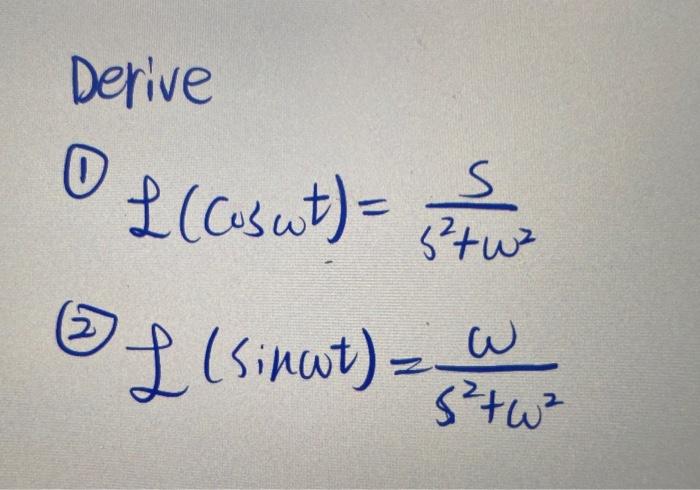 Derive
① ℒ(cos ωt) = s/(s²+ω²)
② ℒ(sin ωt) = ω/(s²+ω²)